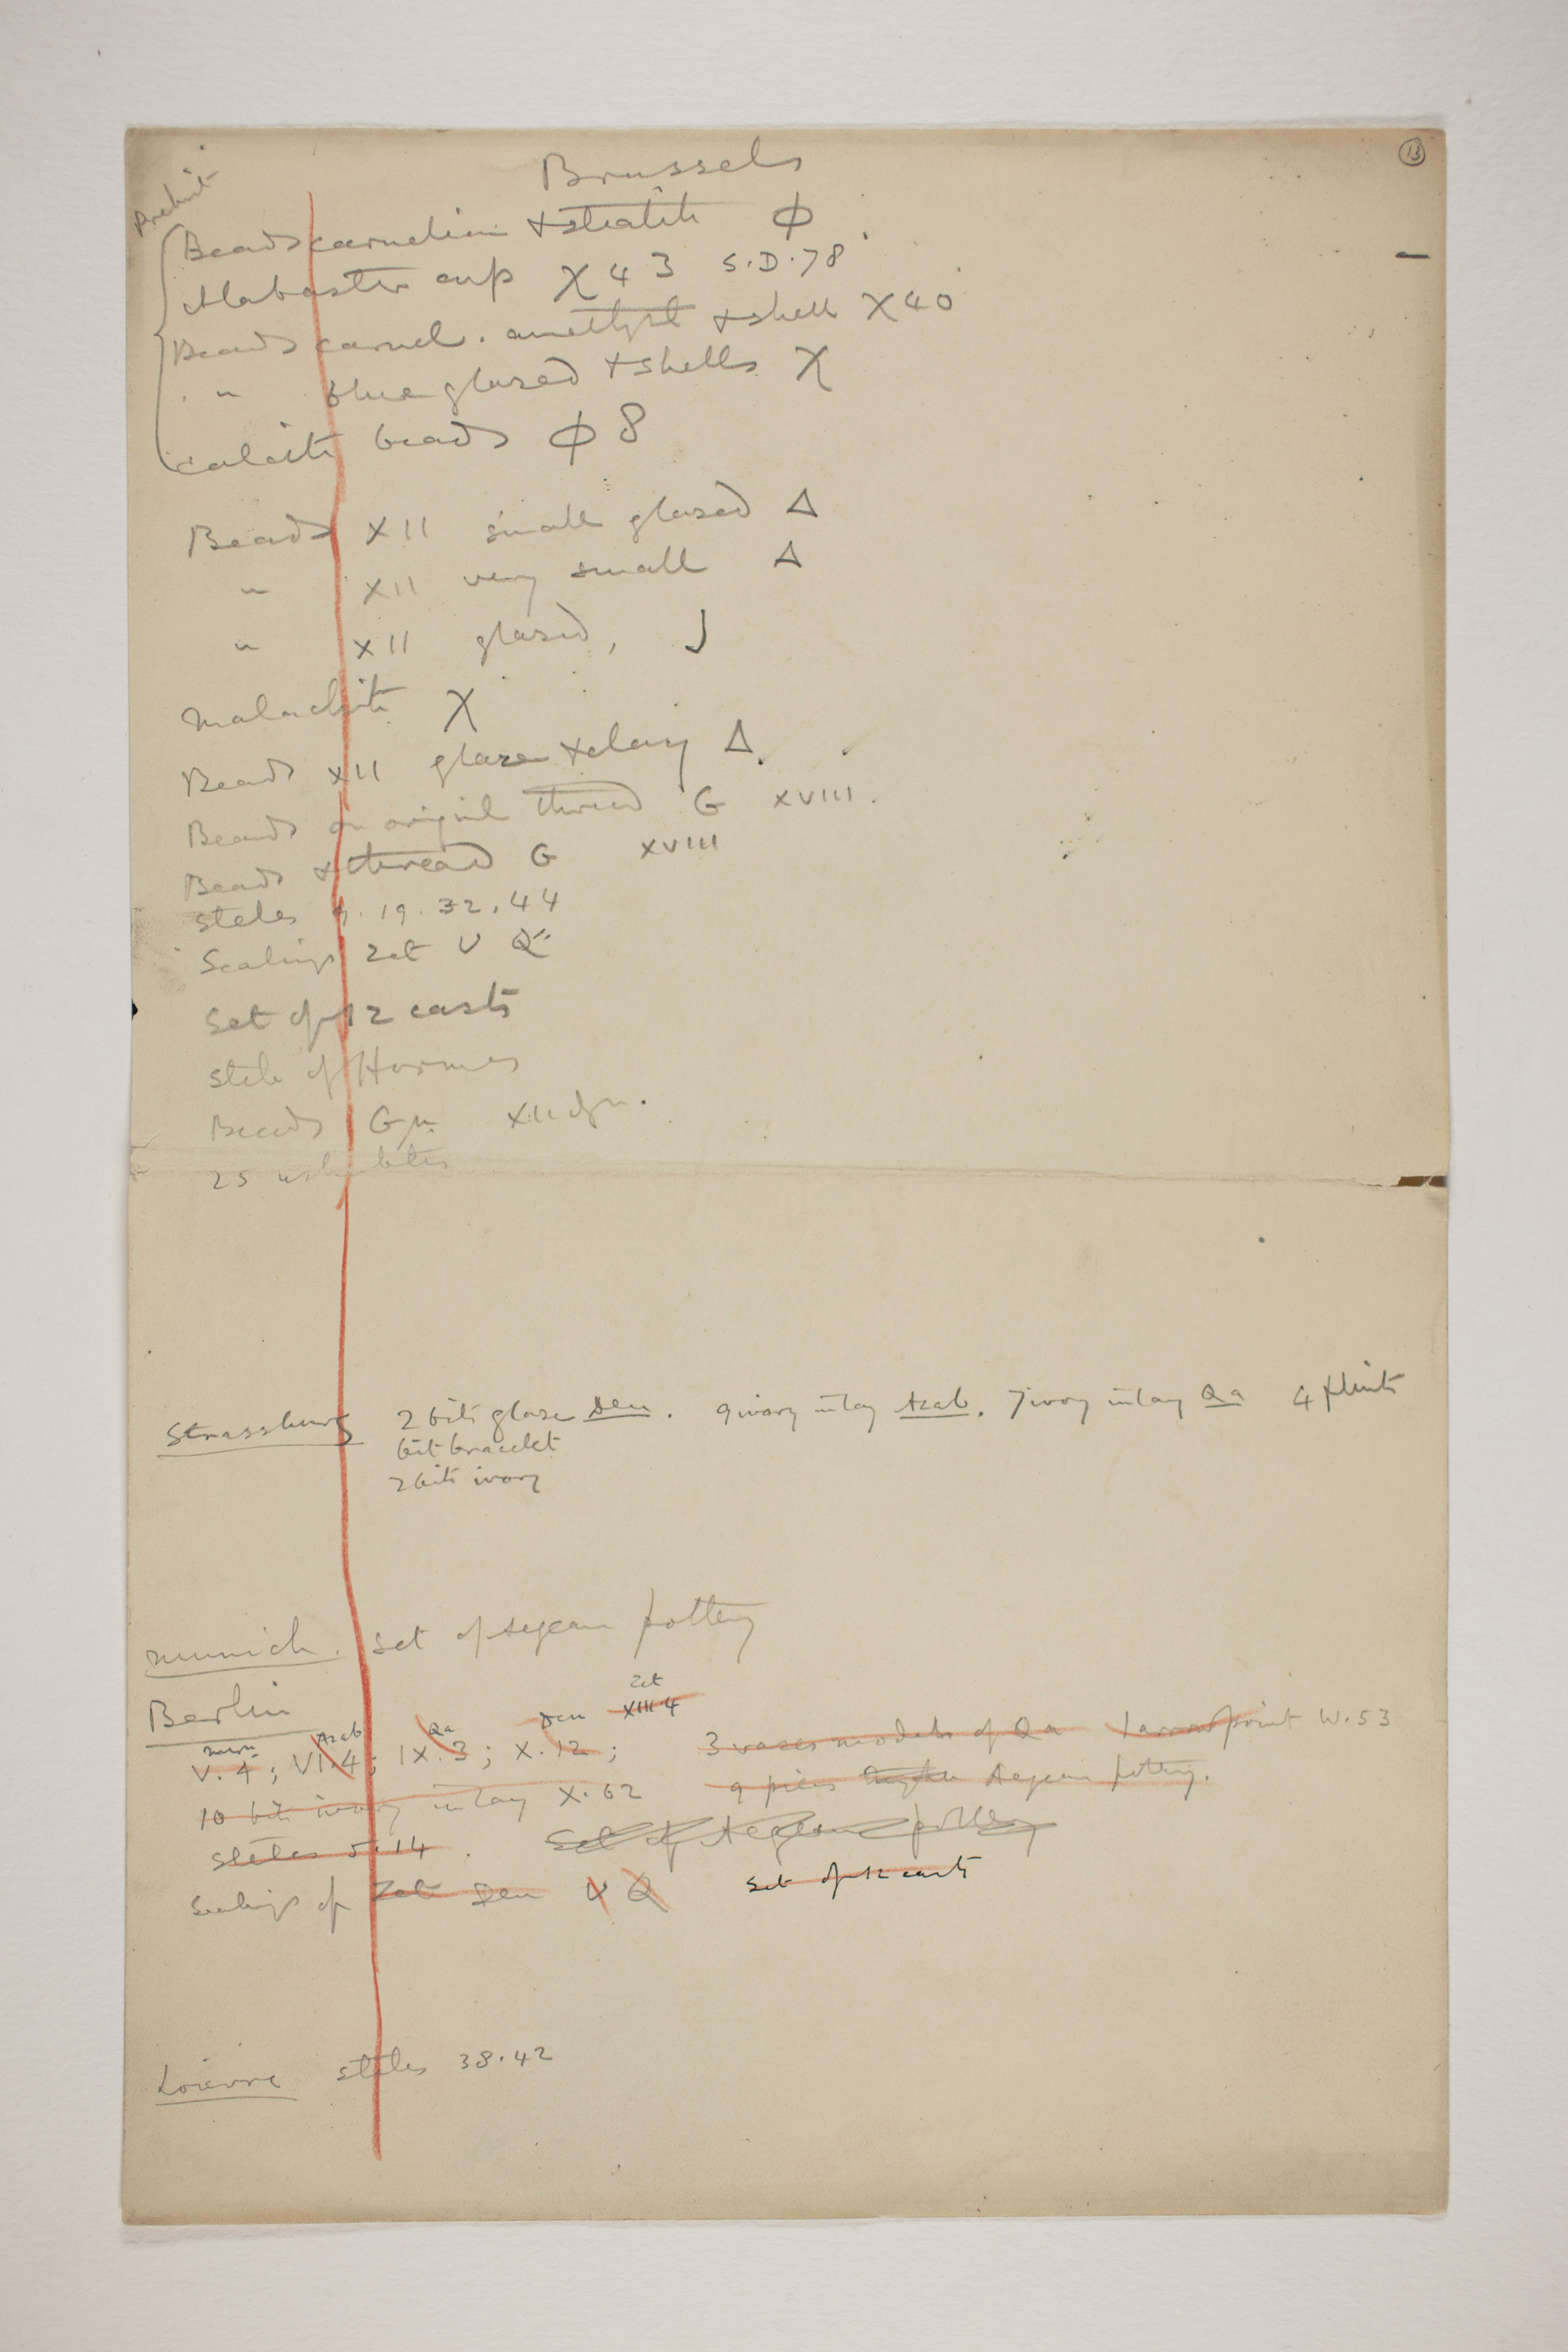 13
Brussels
Prehist
Beads carnelian + steatite ϕ
Alabaster cup χ 43 S.D.78
Beads carnel. amethyst + shell χ 40
" blue glazed + shells χ
calcite beads ϕ 8
Beads XII small glazed Δ
" XII very small Δ
" XII glazed, J
Malachite χ
Beads XII glaze + clay Δ.
Beads on original thread G XVIII.
Beads + thread G XVIII
Steles 9. 19. 32. 44
Sealings Zet U Q
Set of 12 casts
Stele of Hormes
Beads G XII dyn.
25 ushabtis
Strassburg 2 bits glaze Den. 9 ivory inlay Azab. 7 ivory inlay Qa 4 flints
bit bracelet
2 bits ivory
Munich. Set of Aegean pottery
Berlin
Azab Qa Den Zet
XIII 4
V. 4; VI. 4; IX. 3; X. 12; 3 vases models of Qa 1 arrow point W. 53
10 bits ivory inlay X. 62 9 pieces Aegean pottery.
Steles 5. 14. Set of Aegean pottery
Sealings of Zet Den U Q Set of 12 casts
Louvre steles 38. 42